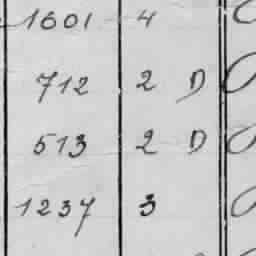 1601 4
712 2 D
513 2 D
1237 3